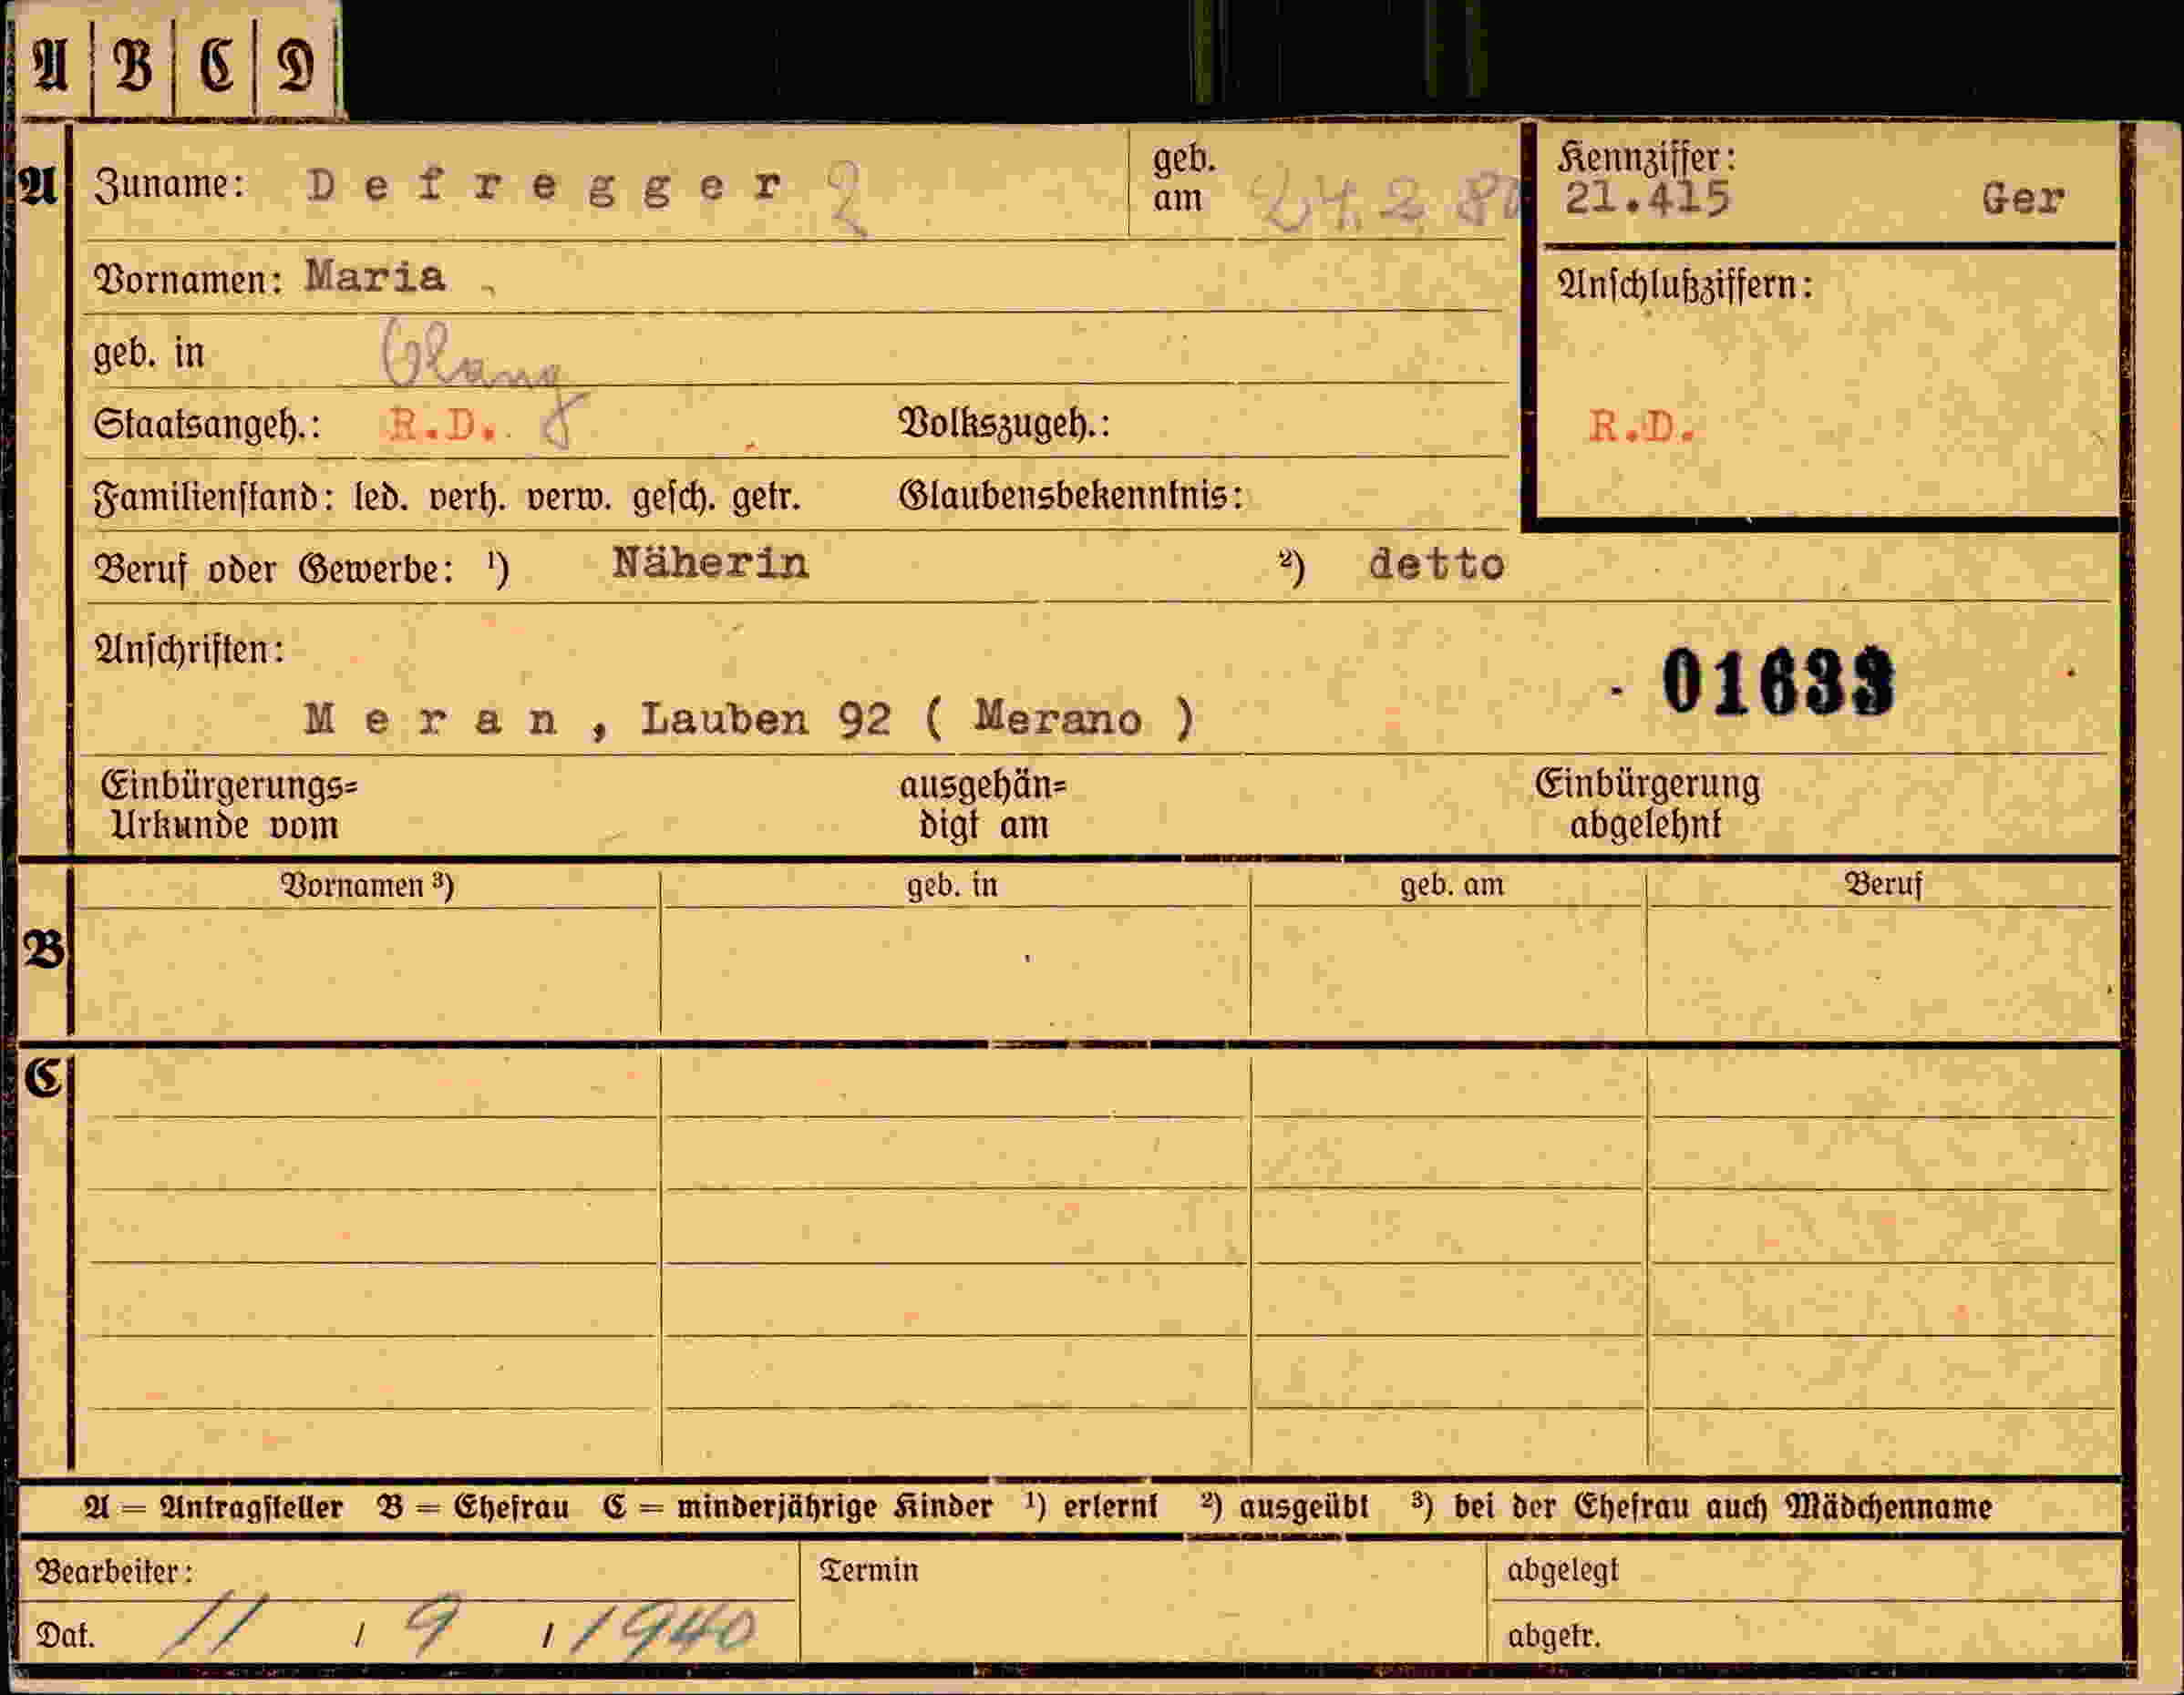 A B C D
A
Zuname: Defregger 2
geb. am 24. 2. 80
Kennziffer:
21.415 Ger
Vornamen: Maria
Anschlußziffern:
geb. in Olang
Staatsangeh.: R.D. Volkszugeh.:
R.D.
Familienstand: led. verh. verw. gesch. getr. Glaubensbekenntnis:
Beruf oder Gewerbe: ¹) Näherin ²) detto
Anschriften:
01633
Meran, Lauben 92 ( Merano )
Einbürgerungs=
Urkunde vom
ausgehän=
digt am
Einbürgerung
abgelehnt
B
Vornamen ³) geb. in geb. am Beruf
C
A = Antragsteller B = Ehefrau C = minderjährige Kinder ¹) erlernt ²) ausgeübt ³) bei der Ehefrau auch Mädchenname
Bearbeiter: Termin abgelegt
Dat. 11 / 9 / 1940 abgetr.